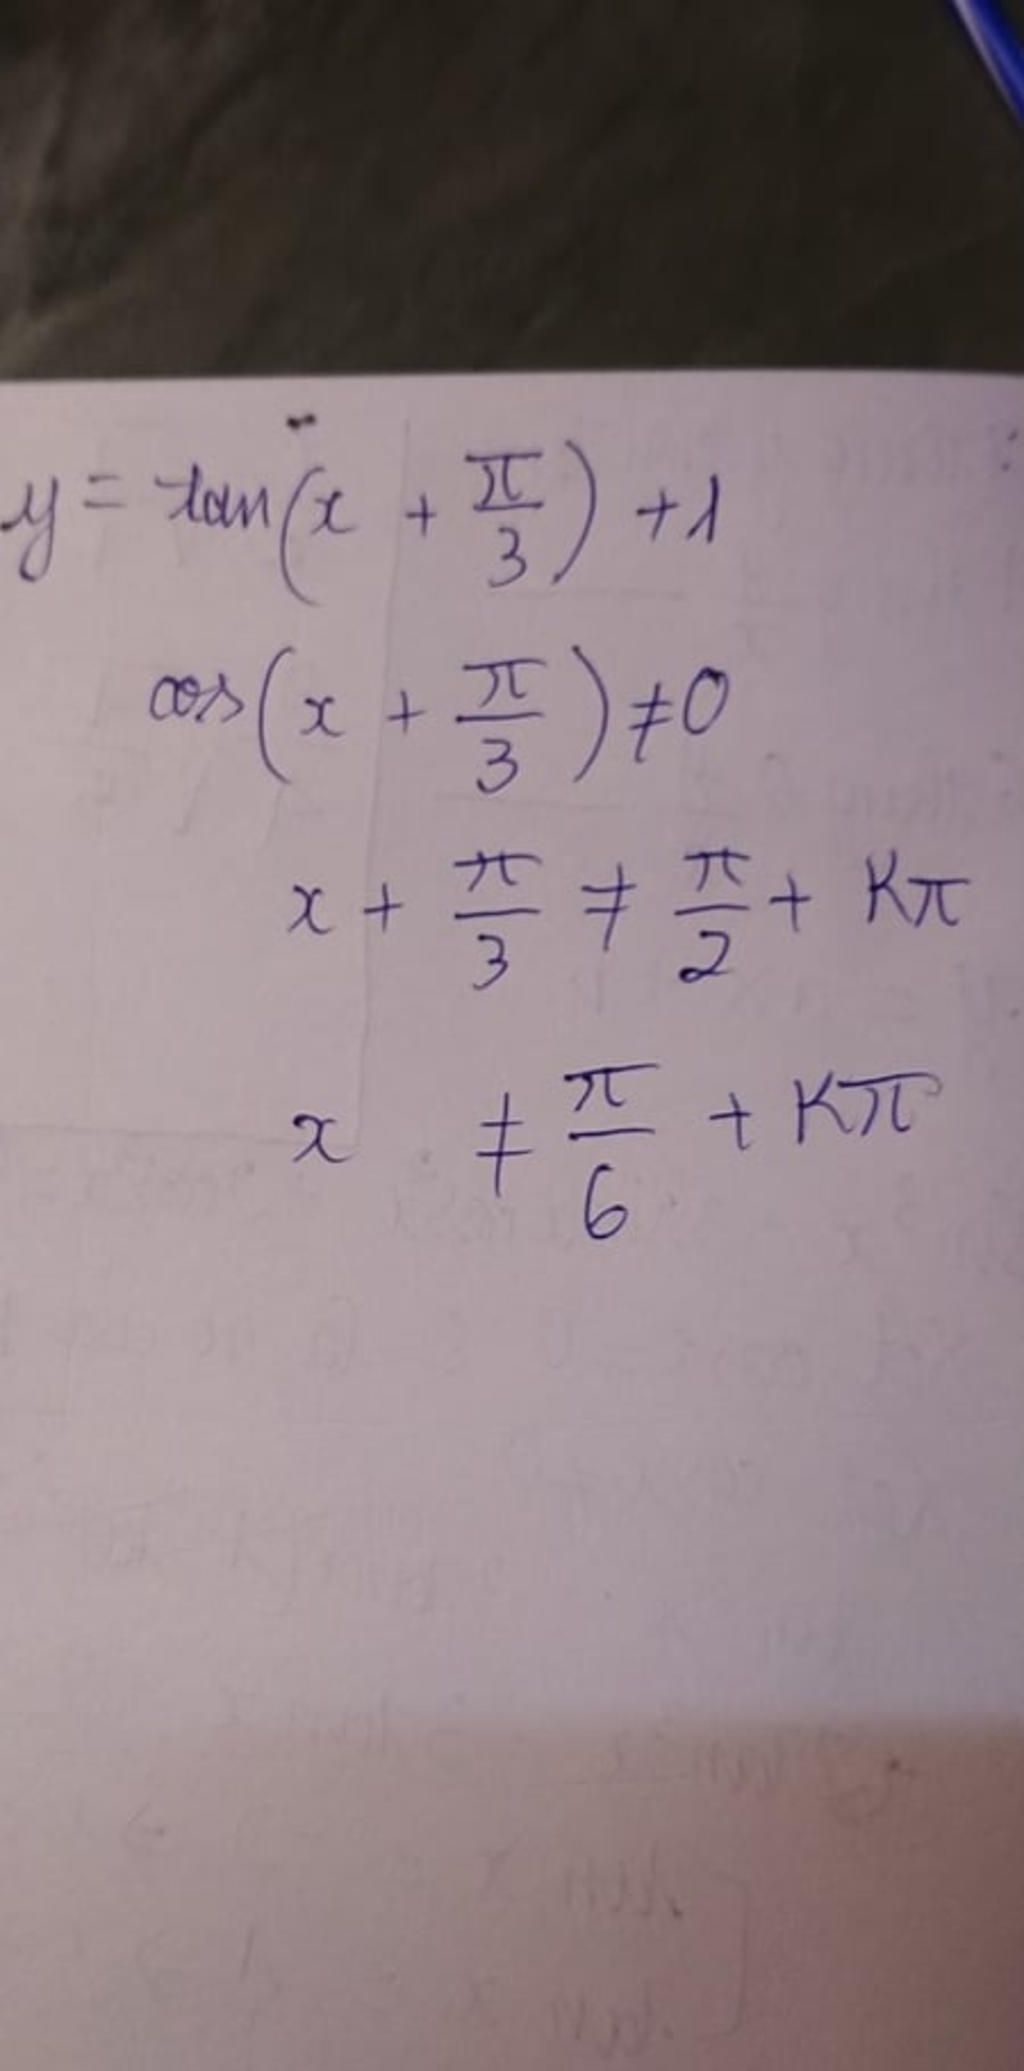 y = tan(x + π/3) + 1
cos(x + π/3) ≠ 0
x + π/3 ≠ π/2 + Kπ
x ≠ π/6 + Kπ